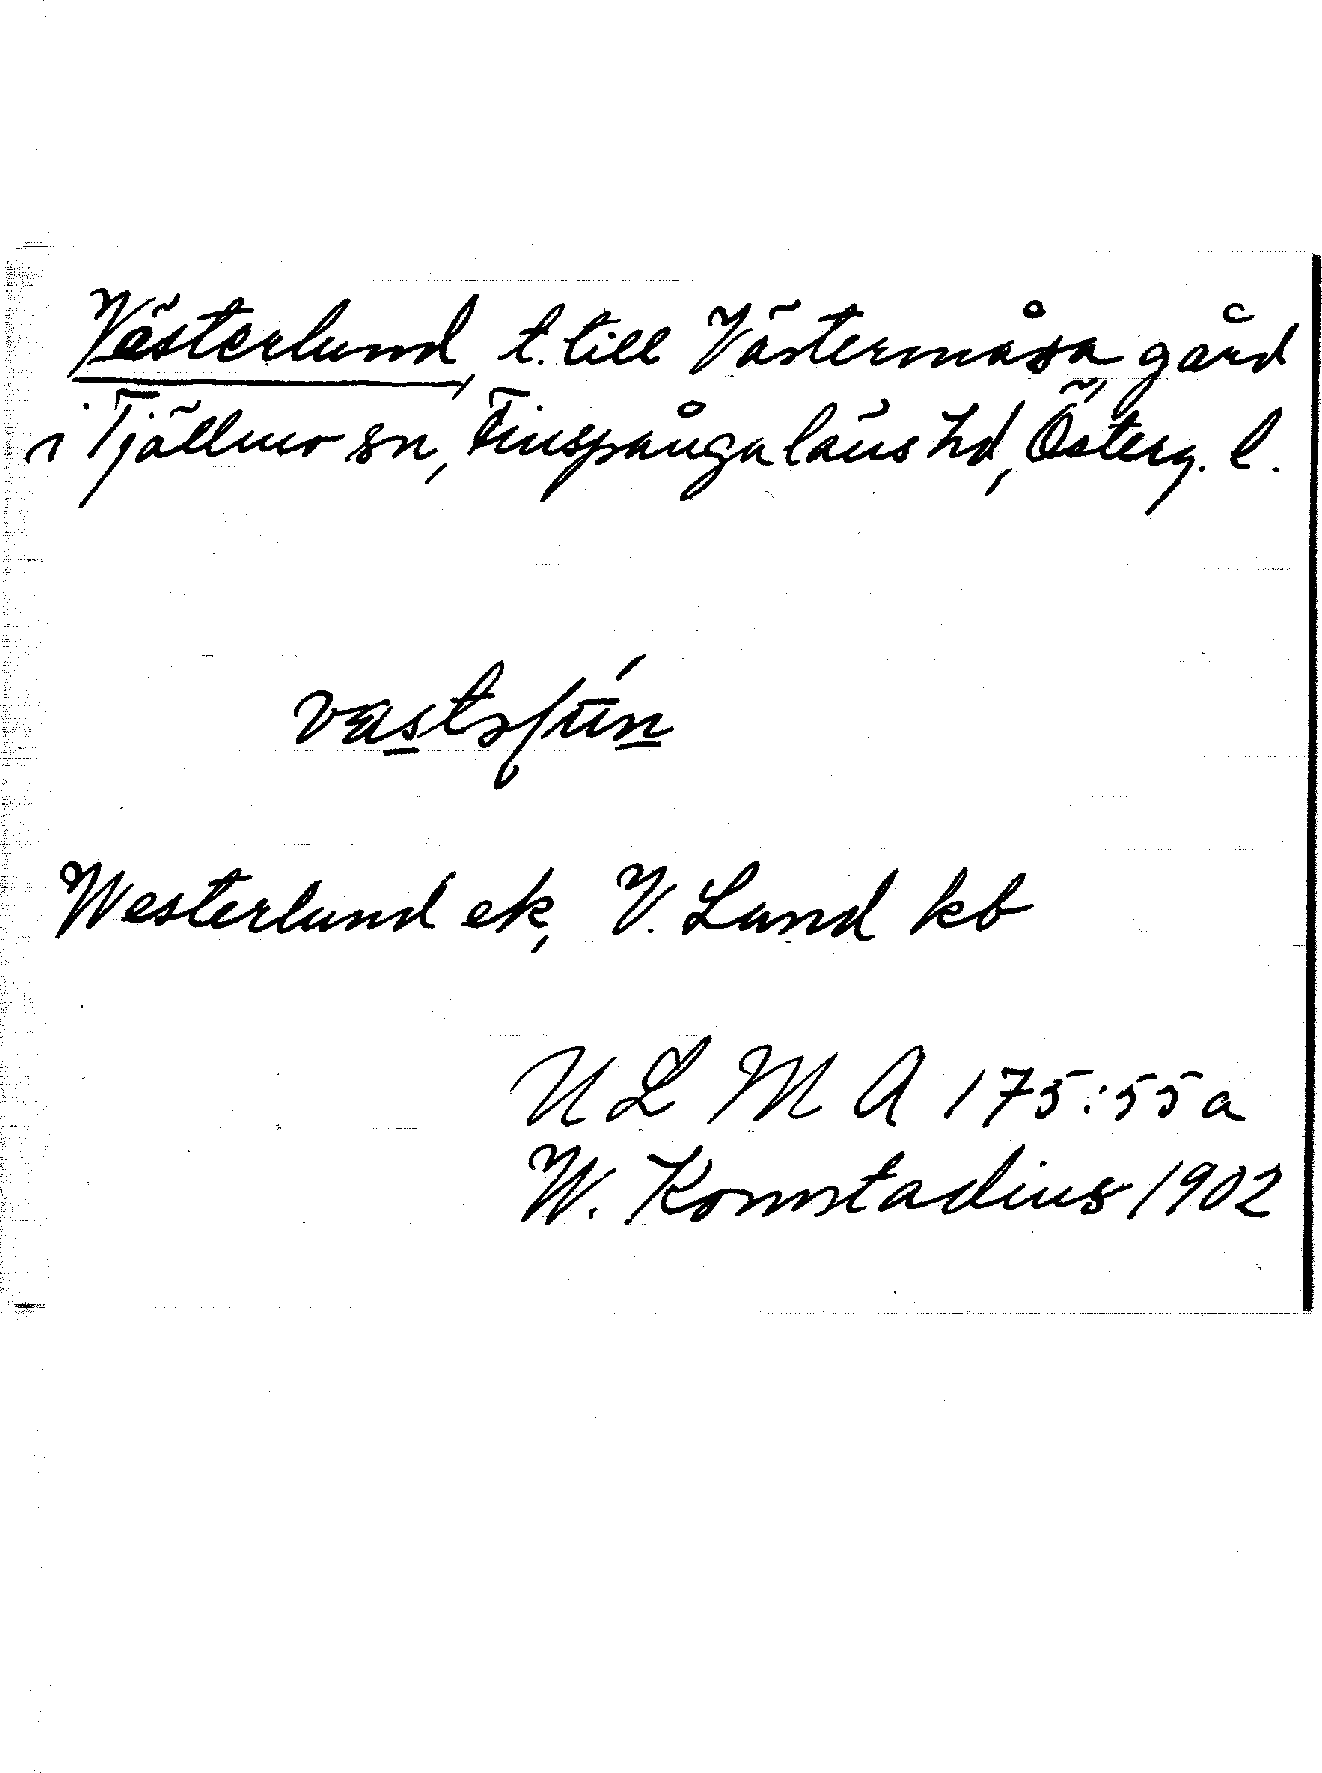 Västerlund, t. till Västermåsa gård
i Tjällmo sn, Finspånga läns hd, Österg. l.
Westerlund ek, V. Lund kb
ULMA 175:55a
W. Konnstadius 1902